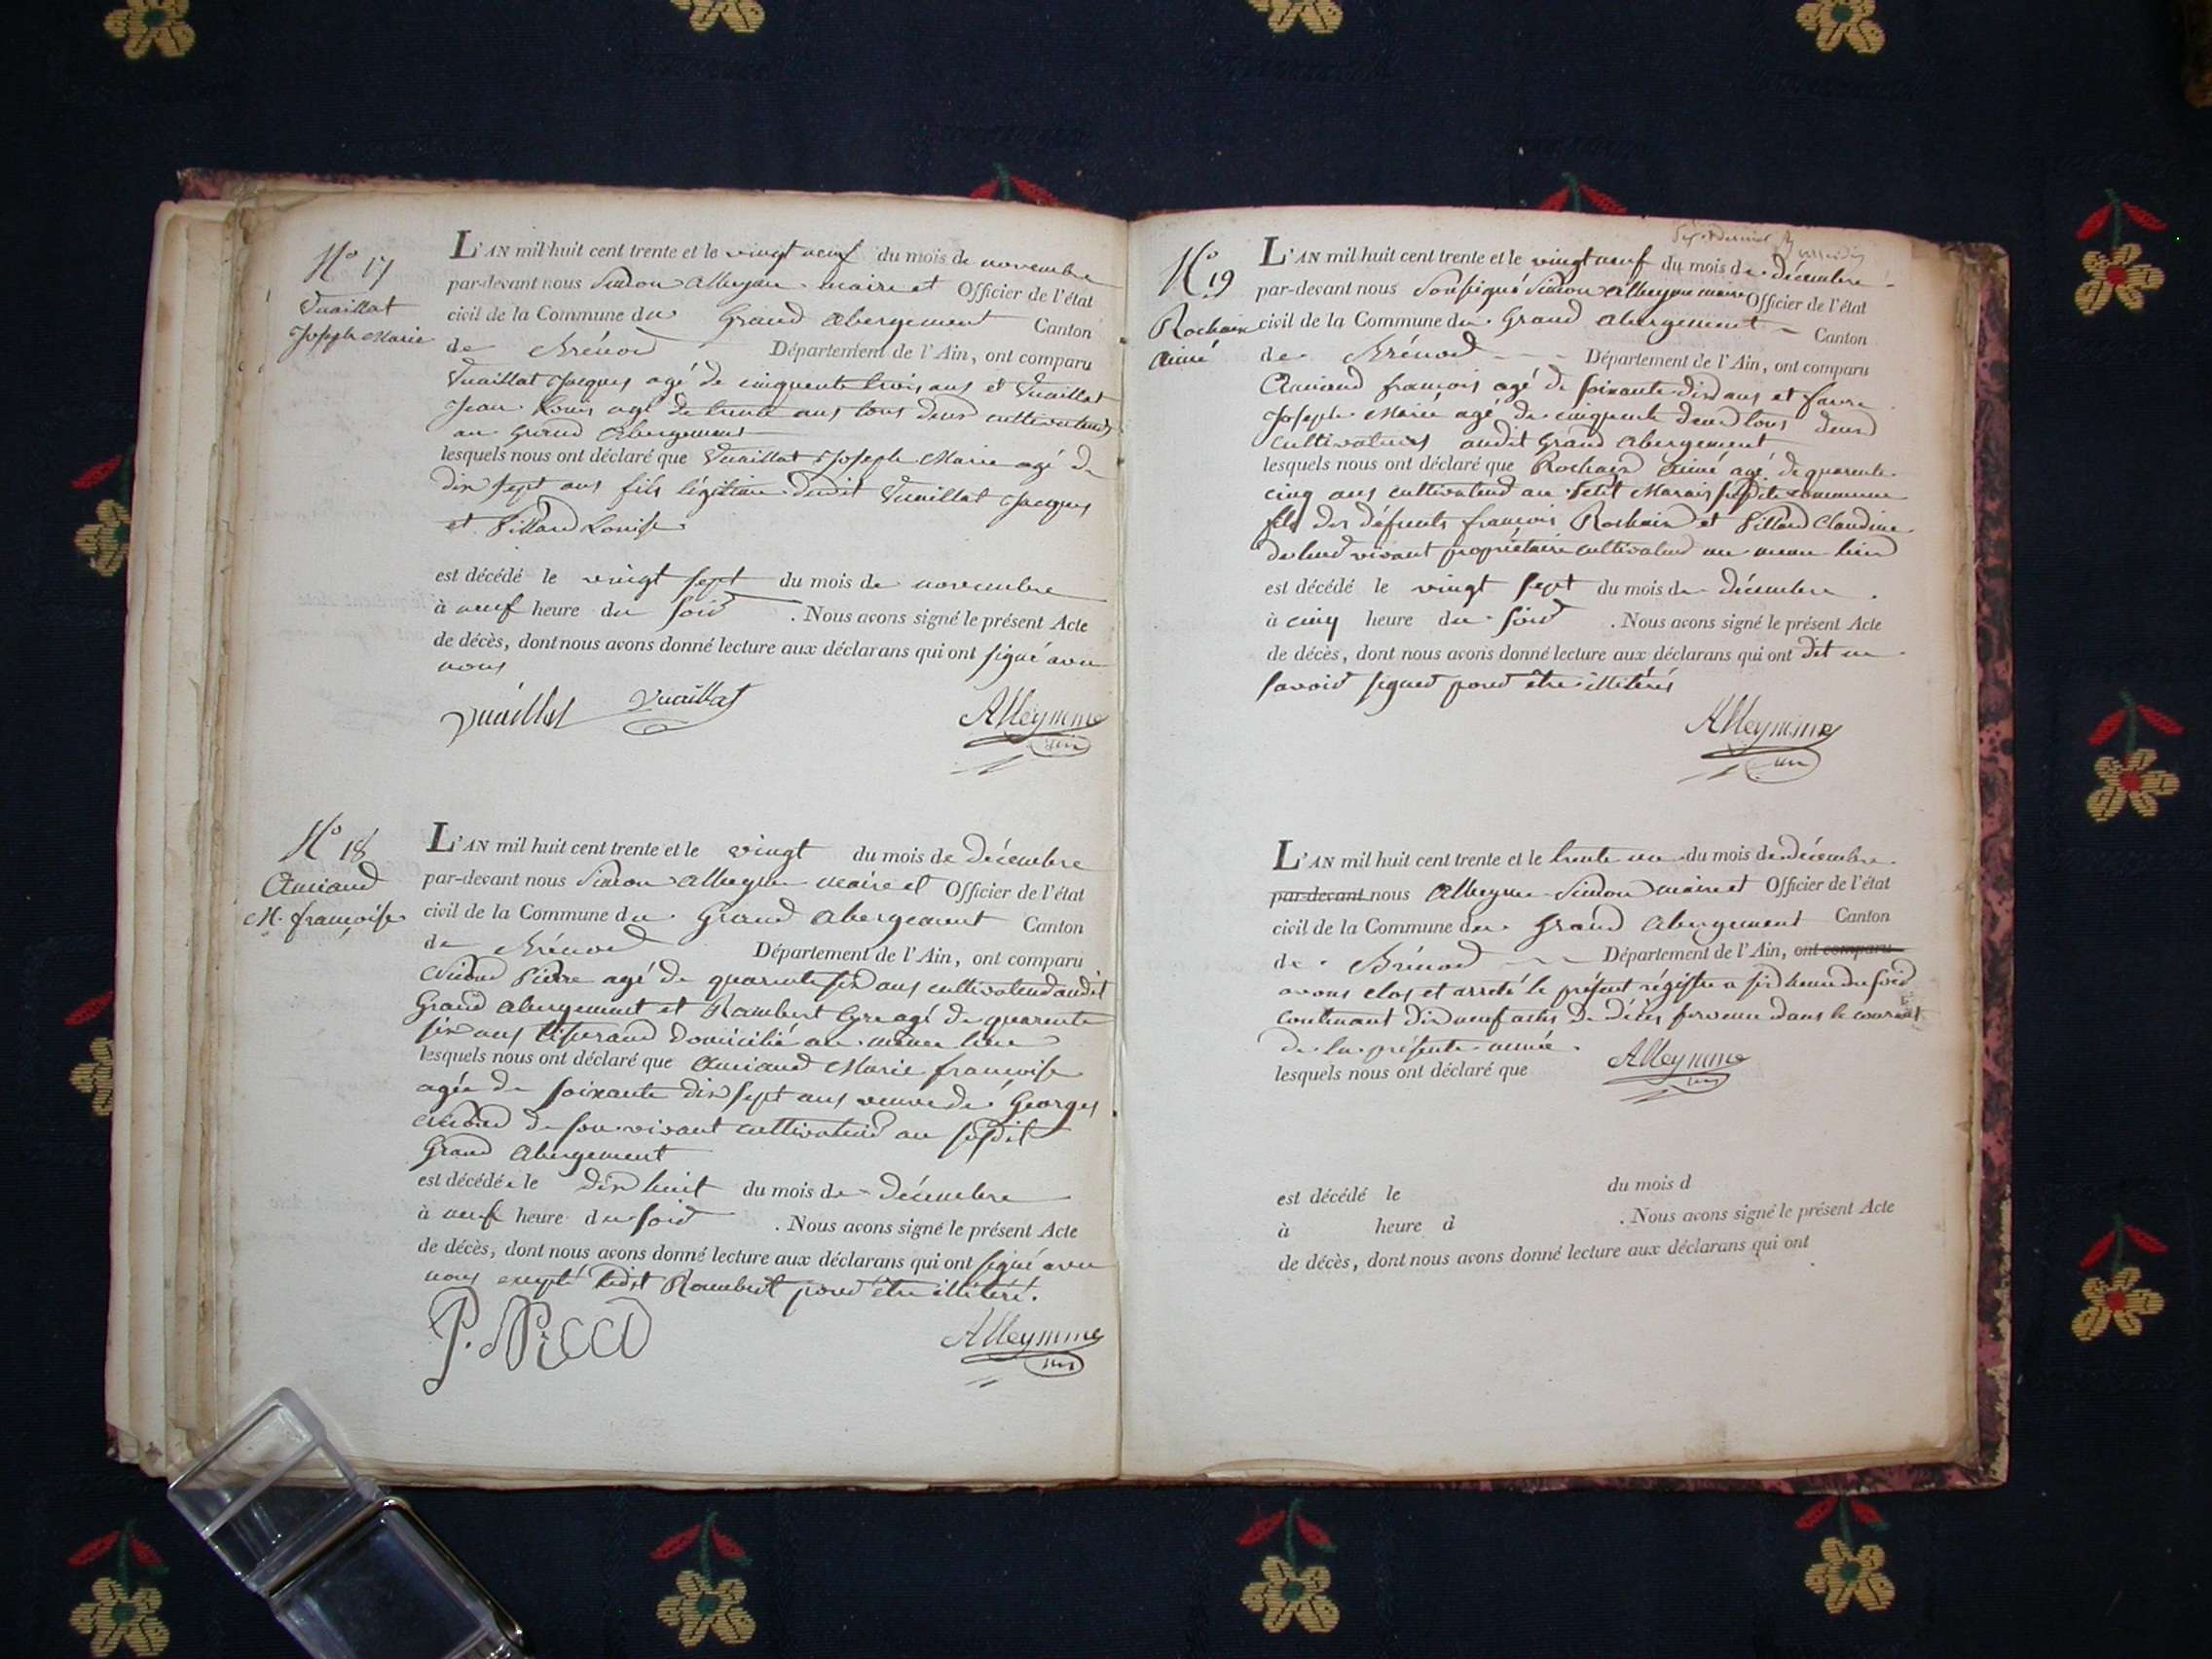 No 17
Vuaillat
Joseph Marie
L'AN mil huit cent trente et le vingt neuf du mois de novembre
par-devant nous Simon Alleyme maire et Officier de l'état
civil de la Commune du Grand abergement Canton
de Brénod Département de l'Ain, ont comparu
Vuaillat Jacques agé de cinquante trois ans et Vuaillat
Jean Louis agé de trente ans tous deux cultivateurs
au Grand abergement
lesquels nous ont déclaré que Vuaillat Joseph Marie agé de
dix sept ans fils légitime dudit Vuaillat Jacques
et Billard Louise
est décédé le vingt sept du mois de novembre
à neuf heure du soir . Nous avons signé le présent Acte
de décès, dont nous avons donné lecture aux déclarans qui ont signé avec
nous
Vuaillat Vuaillat Alleymme
No 18
Amiand
M. françoise
L'AN mil huit cent trente et le vingt du mois de décembre
par-devant nous Simon Alleyme maire et Officier de l'état
civil de la Commune du Grand abergement Canton
de Brénod Département de l'Ain, ont comparu
Pierre agé de quarente six ans cultivateur audit
Grand abergement et Rambert Cyre agé de quarente
six ans tisserand domicilié au même lieu
lesquels nous ont déclaré que Amiand Marie françoise
agée de soixante dix sept ans veuve de Georges
de son vivant cultivateur au susdit
Grand abergement
est décédée le dix huit du mois de décembre
à neuf heure du soir . Nous avons signé le présent Acte
de décès, dont nous avons donné lecture aux déclarans qui ont signé avec
nous excepté ledit Rambert pour être illitéré.
Alleymme
No 19
Rochaix
aimé
L'AN mil huit cent trente et le vingt neuf du mois de décembre
par-devant nous soussigné Simon Alleyme maire Officier de l'état
civil de la Commune du Grand abergement Canton
de Brénod Département de l'Ain, ont comparu
Amiand françois agé de soixante dix ans et favre
Joseph Marie agé de cinquente deux tous deux
cultivateurs audit Grand abergement
lesquels nous ont déclaré que Rochaix aimé agé de quarente
cinq ans cultivateur au Petit Marais susdite commune
fils des défunts françois Rochaix et Billard Claudine
de leur vivant propriétaire cultivateur au meme lieu
est décédé le vingt sept du mois de décembre .
à cinq heure du soir . Nous avons signé le présent Acte
de décès, dont nous avons donné lecture aux déclarans qui ont dit ne
savoir signer pour être illitérés
Alleymme
L'AN mil huit cent trente et le trente un du mois de décembre
par-devant nous Alleyme Simon maire et Officier de l'état
civil de la Commune du Grand abergement Canton
de Brénod Département de l'Ain, ont comparu
avons clos et arrété le présent régistre a six heure du soir
contenant dix neuf actes de décès survenu dans le courant
de la présente année.
lesquels nous ont déclaré que Alleymme
est décédé le du mois d
à heure d . Nous avons signé le présent Acte
de décès, dont nous avons donné lecture aux déclarans qui ont